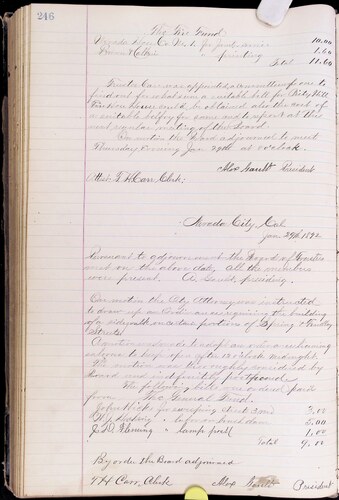 246
The Fire Fund
Nevada Iron Co Work for Junk 10.00
Brown & Calkins printing 1.60
Total 11.60
Trustee Carr was appointed a committee of one to
find out for what sum a suitable bell for
be obtained also the cost of
a suitable belfry for same and to report at the
next regular meeting of the Board.
On motion the Board adjourned to meet
Thursday Evening Jan 29th at 8 o'clock.
Alex Gault President
Attest T. H. Carr, Clerk.
Nevada City, Cal
Jan 29th 1892
Pursuant to adjournment the Board of Trustees
met on the above date, all the members
were present. A. Gault, presiding.
On motion the City Attorney was instructed
to draw up an Ordinance requiring the building
of a sidewalk on certain portions of Spring &
Streets
A motion made to adopt an ordinance
to keep open after 12 o'clock midnight.
The motion was thoroughly discussed by
Board and indefinitely postponed
The following bills were ordered paid
from The General Fund.
John Hick for sweeping street 3.00
5.00
J. D. Fleming " lamp post 1.00
Total 9.00
By order the Board adjourned
T H Carr, Clerk Alex Gault President